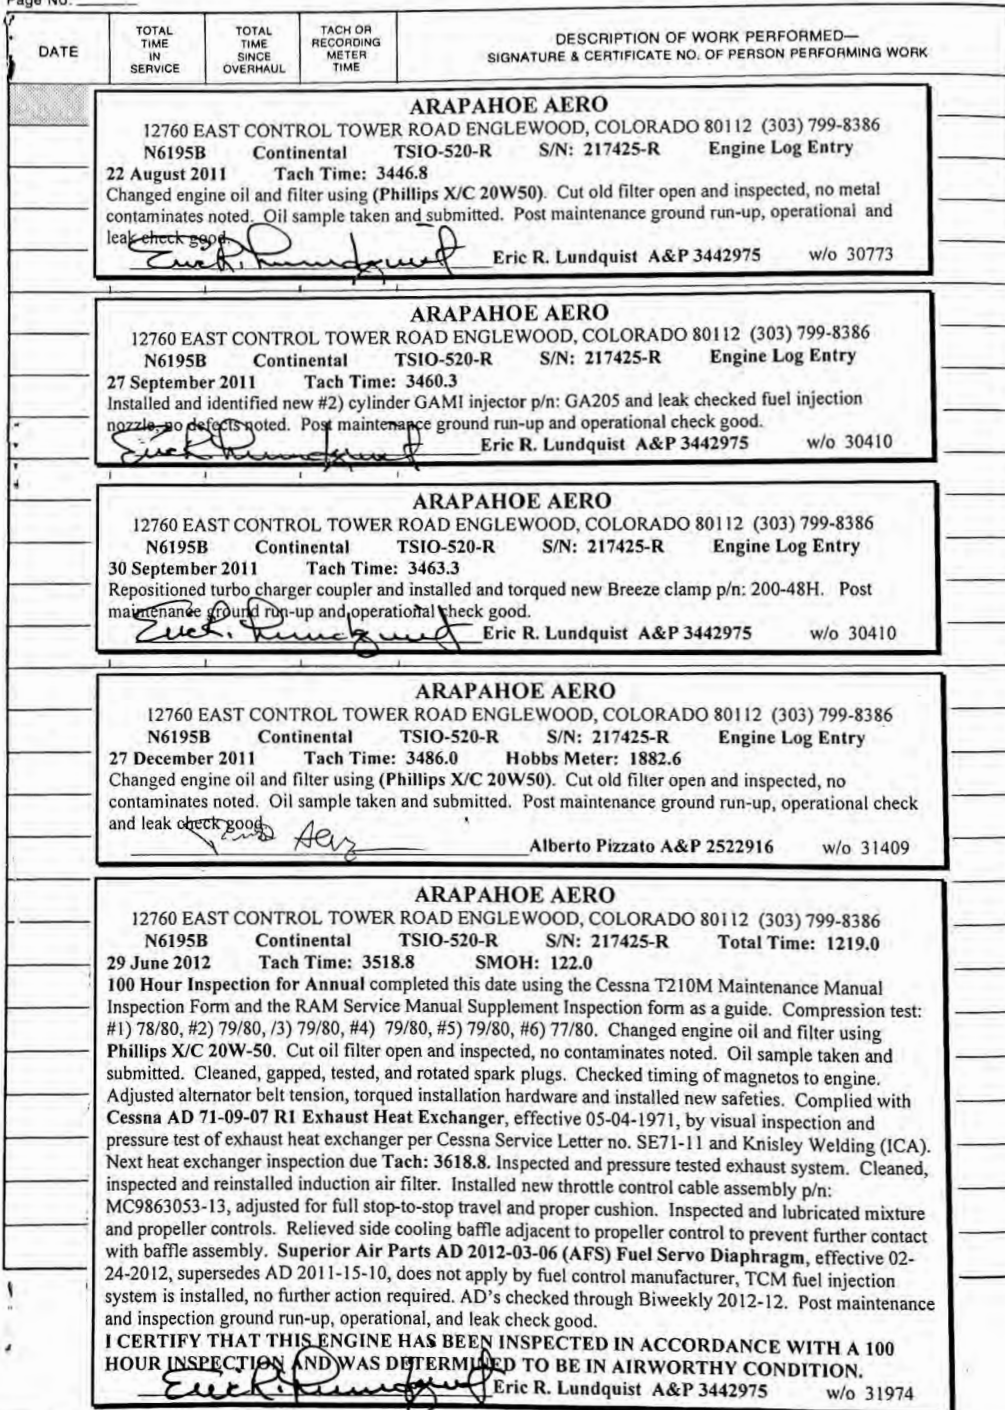 Page No.
DATE
TOTAL TIME IN SERVICE
TOTAL TIME SINCE OVERHAUL
TACH OR RECORDING METER TIME
DESCRIPTION OF WORK PERFORMED—
SIGNATURE & CERTIFICATE NO. OF PERSON PERFORMING WORK
ARAPAHOE AERO
12760 EAST CONTROL TOWER ROAD ENGLEWOOD, COLORADO 80112 (303) 799-8386
N6195B Continental TSIO-520-R S/N: 217425-R Engine Log Entry
22 August 2011 Tach Time: 3446.8
Changed engine oil and filter using (Phillips X/C 20W50). Cut old filter open and inspected, no metal
contaminates noted. Oil sample taken and submitted. Post maintenance ground run-up, operational and
leak check good.
Eric R. Lundquist Eric R. Lundquist A&P 3442975 w/o 30773
ARAPAHOE AERO
12760 EAST CONTROL TOWER ROAD ENGLEWOOD, COLORADO 80112 (303) 799-8386
N6195B Continental TSIO-520-R S/N: 217425-R Engine Log Entry
27 September 2011 Tach Time: 3460.3
Installed and identified new #2) cylinder GAMI injector p/n: GA205 and leak checked fuel injection
nozzle, no defects noted. Post maintenance ground run-up and operational check good.
Eric R. Lundquist Eric R. Lundquist A&P 3442975 w/o 30410
ARAPAHOE AERO
12760 EAST CONTROL TOWER ROAD ENGLEWOOD, COLORADO 80112 (303) 799-8386
N6195B Continental TSIO-520-R S/N: 217425-R Engine Log Entry
30 September 2011 Tach Time: 3463.3
Repositioned turbo charger coupler and installed and torqued new Breeze clamp p/n: 200-48H. Post
maintenance ground run-up and operational check good.
Eric R. Lundquist Eric R. Lundquist A&P 3442975 w/o 30410
ARAPAHOE AERO
12760 EAST CONTROL TOWER ROAD ENGLEWOOD, COLORADO 80112 (303) 799-8386
N6195B Continental TSIO-520-R S/N: 217425-R Engine Log Entry
27 December 2011 Tach Time: 3486.0 Hobbs Meter: 1882.6
Changed engine oil and filter using (Phillips X/C 20W50). Cut old filter open and inspected, no
contaminates noted. Oil sample taken and submitted. Post maintenance ground run-up, operational check
and leak check good.
Alberto Pizzato A&P 2522916 w/o 31409
ARAPAHOE AERO
12760 EAST CONTROL TOWER ROAD ENGLEWOOD, COLORADO 80112 (303) 799-8386
N6195B Continental TSIO-520-R S/N: 217425-R Total Time: 1219.0
29 June 2012 Tach Time: 3518.8 SMOH: 122.0
100 Hour Inspection for Annual completed this date using the Cessna T210M Maintenance Manual
Inspection Form and the RAM Service Manual Supplement Inspection form as a guide. Compression test:
#1) 78/80, #2) 79/80, /3) 79/80, #4) 79/80, #5) 79/80, #6) 77/80. Changed engine oil and filter using
Phillips X/C 20W-50. Cut oil filter open and inspected, no contaminates noted. Oil sample taken and
submitted. Cleaned, gapped, tested, and rotated spark plugs. Checked timing of magnetos to engine.
Adjusted alternator belt tension, torqued installation hardware and installed new safeties. Complied with
Cessna AD 71-09-07 R1 Exhaust Heat Exchanger, effective 05-04-1971, by visual inspection and
pressure test of exhaust heat exchanger per Cessna Service Letter no. SE71-11 and Knisley Welding (ICA).
Next heat exchanger inspection due Tach: 3618.8. Inspected and pressure tested exhaust system. Cleaned,
inspected and reinstalled induction air filter. Installed new throttle control cable assembly p/n:
MC9863053-13, adjusted for full stop-to-stop travel and proper cushion. Inspected and lubricated mixture
and propeller controls. Relieved side cooling baffle adjacent to propeller control to prevent further contact
with baffle assembly. Superior Air Parts AD 2012-03-06 (AFS) Fuel Servo Diaphragm, effective 02-
24-2012, supersedes AD 2011-15-10, does not apply by fuel control manufacturer, TCM fuel injection
system is installed, no further action required. AD's checked through Biweekly 2012-12. Post maintenance
and inspection ground run-up, operational, and leak check good.
I CERTIFY THAT THIS ENGINE HAS BEEN INSPECTED IN ACCORDANCE WITH A 100
HOUR INSPECTION AND WAS DETERMINED TO BE IN AIRWORTHY CONDITION.
Eric R. Lundquist Eric R. Lundquist A&P 3442975 w/o 31974